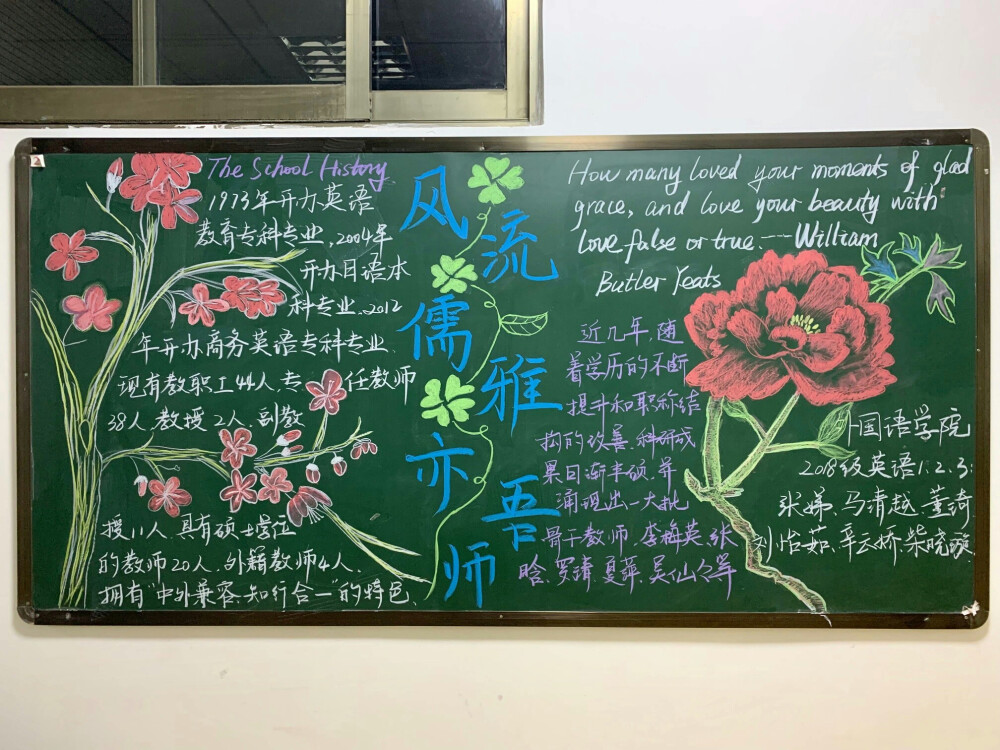 The School History
1973年开办英语
教育专科专业,2004年
开办日语本
科专业、2012
年开办商务英语专科专业、
现有教职工44人,专任教师
38人、教授2人、副教
授11人、具有硕士学位
的教师20人、外籍教师4人、
拥有“中外兼容、知行合一”的特色、
风流儒雅亦吾师
How many loved your moments of glad
grace, and love your beauty with
love false or true.---William
Butler Yeats
近几年,随
着学历的不断
提升和职称结
构的改善、科研成
果日渐丰硕、并
涌现出一大批
骨干教师、李梅英、张
晗、罗靖、夏萍、吴小山等
外国语学院
2018级英语1.2.3:
张娣、马靖越、董琦
刘怡茹、辛云娇、柴晓璇